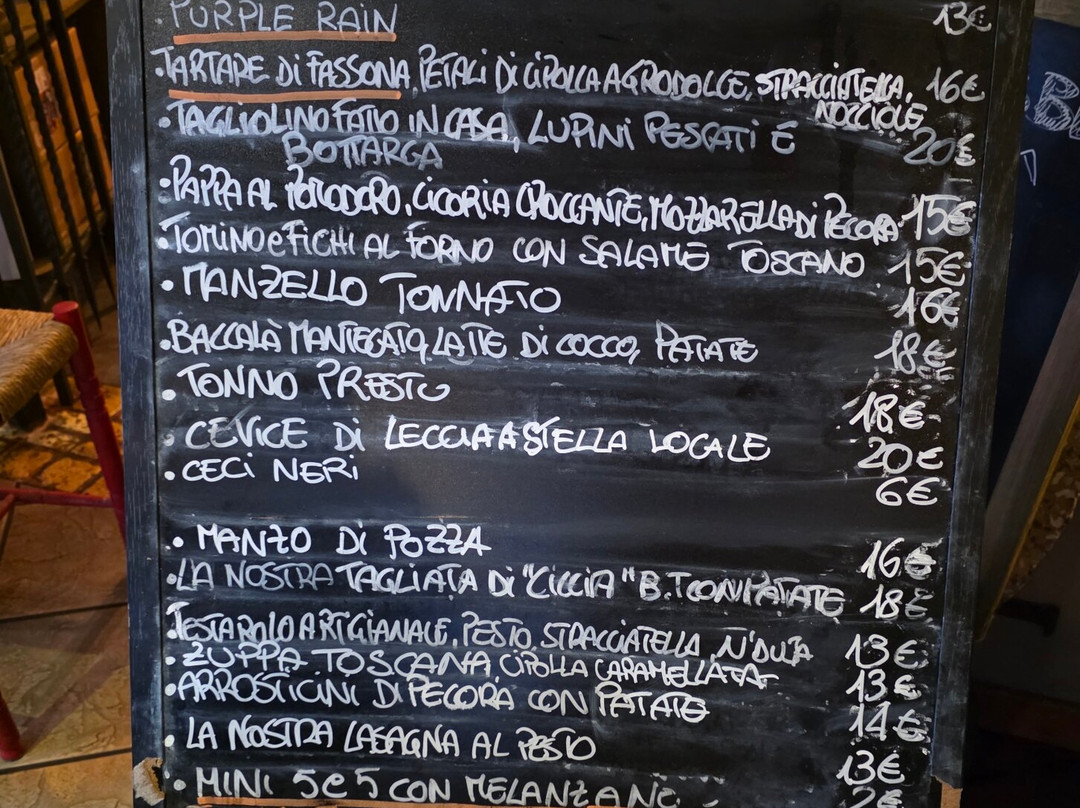 • PURPLE RAIN 13€
• TARTARE Di FASSONA, PETALi Di CiPOLLA AGRODOLCE, STRACCiATELLA, 16€
NOCCiOLE
• TAGLiOLiNO FATTO iN CASA, LUPiNi PESCATi E 20€
BOTTARGA
• PAPPA AL POMODORO, CiCORiA CROCCANTE, MOZZARELLA Di PECORA 15€
• TOMiNO e FiCHi AL FORNO CON SALAME TOSCANO 15€
• MANZELLO TONNATO 16€
• BACCALÀ MANTECATO, LATTE Di COCCO, PATATE 18€
• TONNO PRESTO 18€
• CEViCE Di LECCiA A STELLA LOCALE 20€
• CECi NERi 6€
• MANZO Di POZZA 16€
• LA NOSTRA TAGLiATA Di "CiCCiA" B.T CON PATATE 18€
• TESTAROLO ARTiGiANALE, PESTO, STRACCiATELLA, N'DUJA 13€
• ZUPPA TOSCANA, CiPOLLA CARAMELLATA 13€
• ARROSTiCiNi Di PECORA CON PATATE 14€
• LA NOSTRA LASAGNA AL PESTO 13€
• MiNi 5 e 5 CON MELANZANE 2€